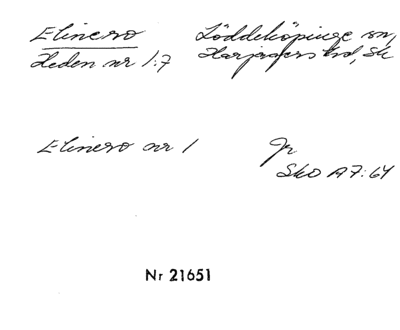 Elinero Löddeköpinge sn,
Heden nr 1:7 Harjagers hd, Sk
Elinero nr 1 Jr
Sko A7:64
Nr 21651